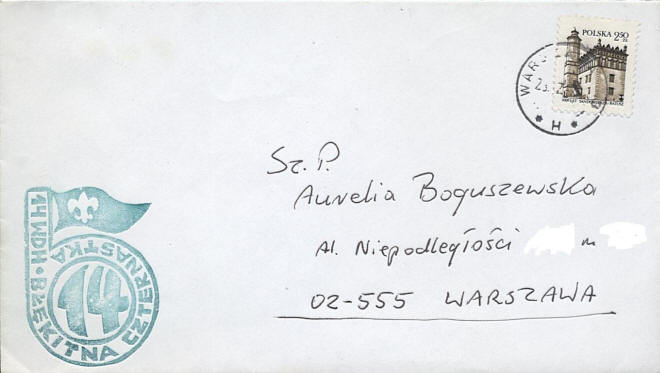 POLSKA 2,50 zł
WARS
H
Sz. P.
Aurelia Boguszewska
Al. Niepodległości m
02-555 WARSZAWA
14 WDH • BŁĘKITNA CZTERNASTKA
14